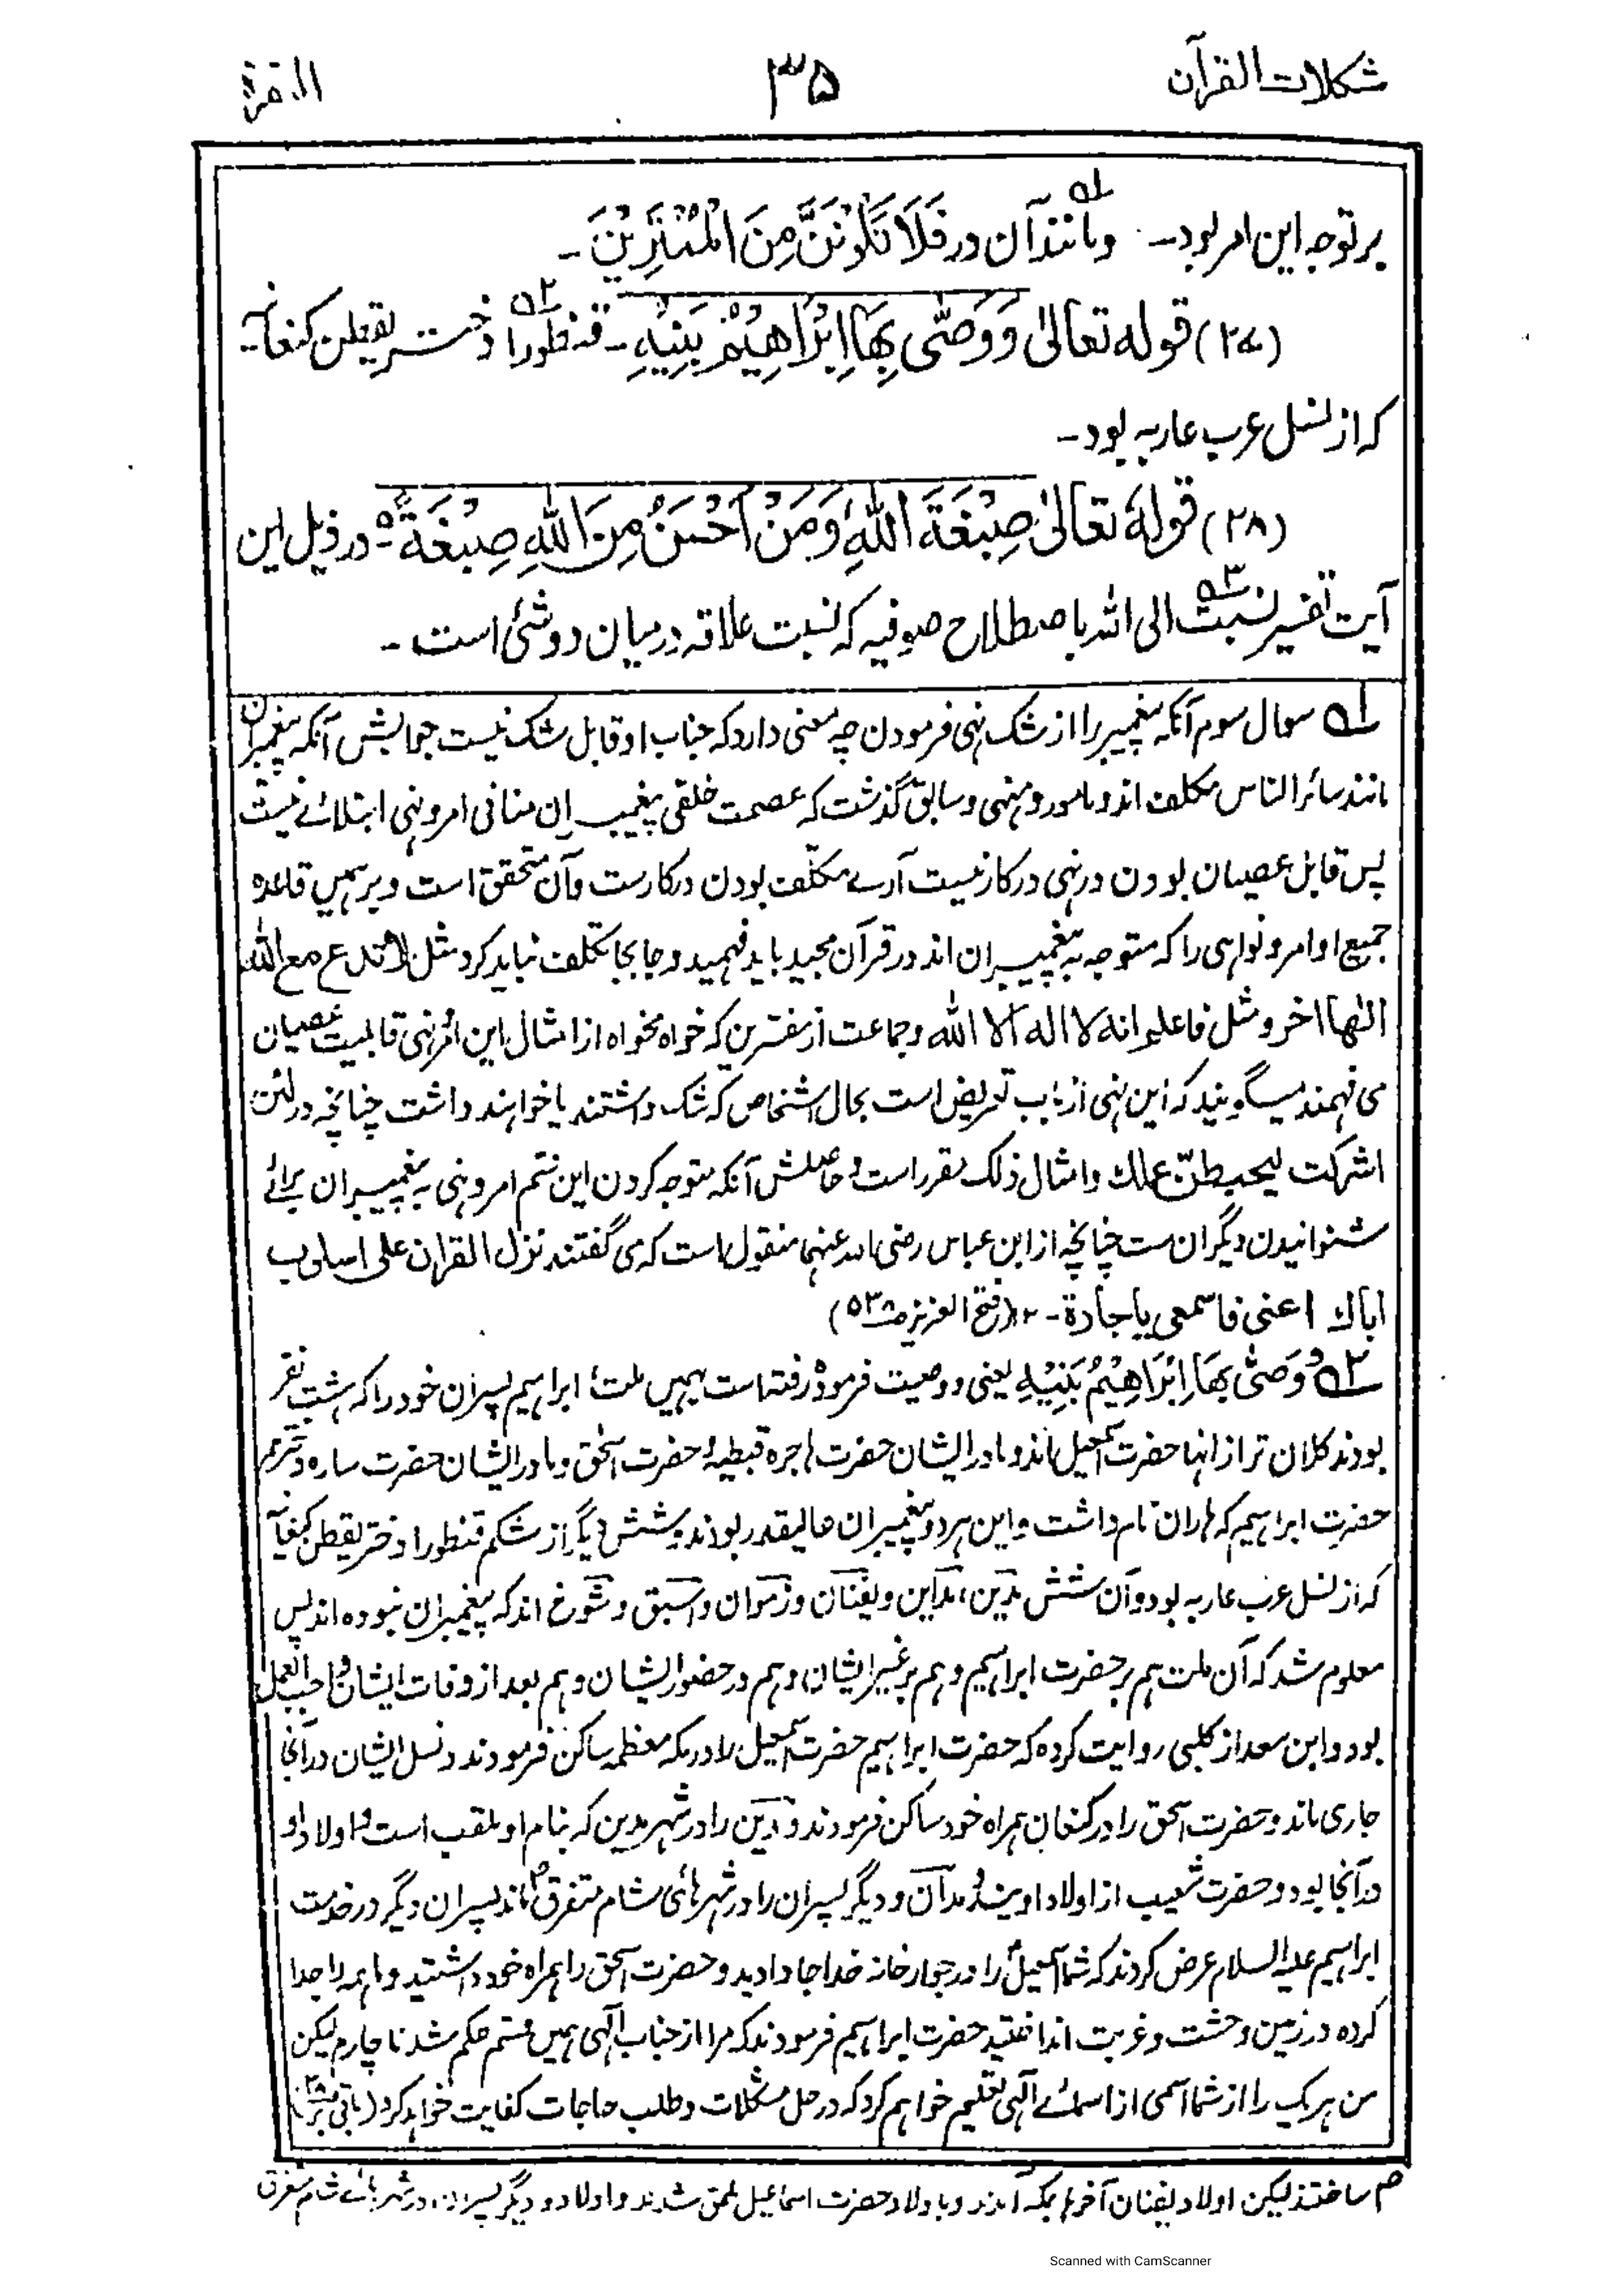 شکلات القرآن
۳۵
البقرة
بر توجہ این امر بود۔ و مانند آن در فَلَا تَكُوْنَنَّ مِنَ الْمُمْتَرِيْنَ ۔ ۵۱
(۲۷) قولہ تعالیٰ وَوَصّٰى بِهَا اِبْرَاهِيْمُ بَنِيْهِ ۔ قنطورا ۵۲ دختر یقطن کنعانیہ
کہ از نسل عرب عاربہ بود۔
(۲۸) قولہ تعالیٰ صِبْغَةَ اللّٰهِ وَمَنْ اَحْسَنُ مِنَ اللّٰهِ صِبْغَةً ۔ در ذیل این
آیت تفسیر نسبت ۵۳ الی اللہ باصطلاح صوفیہ کہ نسبت علاقہ درمیان دو شئ است ۔
۵۱ سوال سوم آنکہ پیغمبر را از شک نہی فرمودن چہ معنی دارد کہ جناب او قابل شک نیست جوابش آنکہ پیغمبران
مانند سائر الناس مکلف اند و مامور و منہی و سابق گذشت کہ عصمت خلقی پیغمبران منافی امر و نہی ابتلائے نیست
پس قابل عصیان بودن در نہی درکار نیست آرے مکلف بودن درکارست و آن متحقق است و بر ہمیں قاعدہ
جمیع اوامر و نواہی را کہ متوجہ بہ پیغمبران اند در قرآن مجید باید فہمید و جابجا تکلف نباید کرد مثل لا تدع مع الله
الٰها اخر و مثل فاعلم انه لا اله الا الله و جماعت از مفسرین کہ خواہ مخواہ از امثال این امر نہی قابلیت عصیان
می فہمند میگویند کہ این نہی از باب تعریض است بحال اشخاص کہ شک داشتند یا خواہند داشت چنانچہ در لئن
اشرکت لیحبطنّ عملك و امثال ذلک مقرر است و حاصلش آنکہ متوجہ کردن این قسم امر و نہی بہ پیغمبران برائے
شنوانیدن دیگران ست چنانچہ از ابن عباس رضی اللہ عنہما منقول است کہ می گفتند نزل القران علی اسلوب
اياك اعنی فاسمعی یا جارة۔ ۱۲ (فتح العزیز ص۵۳۰)
۵۲ وَوَصّٰى بِهَا اِبْرَاهِيْمُ بَنِيْهِ یعنی و وصیت فرمودہ رفتہ است بہمیں ملت ابراہیم پسران خود را کہ ہشت نفر
بودند کلان تر از انہا حضرت اسمٰعیل اند و مادر ایشان حضرت ہاجرہ قبطیہ و حضرت اسحٰق و مادر ایشان حضرت سارہ دختر عم
حضرت ابراہیم کہ ہاران نام داشت و این ہر دو پیغمبران عالیقدر بودند و شش دیگر از شکم قنطورا دختر یقطن کنعانیہ
کہ از نسل عرب عاربہ بود و آن شش مدین، مداین و یفنان و زمران و اسبق و شوخ اند کہ پیغمبران نبودہ اند پس
معلوم شد کہ آن ملت ہم بر حضرت ابراہیم و ہم بر غیر ایشان و ہم در حضور ایشان و ہم بعد از وفات ایشان واجب العمل
بود و ابن سعد از کلبی روایت کردہ کہ حضرت ابراہیم حضرت اسمٰعیل را در مکہ معظمہ ساکن فرمودند و نسل ایشان در آنجا
جاری ماند و حضرت اسحٰق را در کنعان ہمراہ خود ساکن فرمودند و مدین را در شہر مدین کہ بنام او ملقب است و اولاد او
در آنجا بود و حضرت شعیب از اولاد اویند و مدآن و دیگر پسران را در شہرہائی شام متفرق م ماند پسران دیگر در خدمت
ابراہیم علیہ السلام عرض کردند کہ شما اسمٰعیل را در جوار خانہ خدا جا دادید و حضرت اسحٰق را ہمراہ خود داشتید و ما ہمہ را جدا
کردہ در زمین وحشت و غربت انداختید حضرت ابراہیم فرمودند کہ مرا از جناب الٰہی ہمیں قسم حکم شد ناچارم لیکن
من ہر یک را از شما اسمی از اسمائے الٰہی تعلیم خواہم کرد کہ در حل مشکلات و طلب حاجات کفایت خواہد کرد (باقی بر
م ساختند لیکن اولاد یفنان آخر ہا بمکہ آمدند و با ولاد حضرت اسماعیل ملحق شدند و اولاد و دیگر پسران در شہرہائے شام متفرق
Scanned with CamScanner